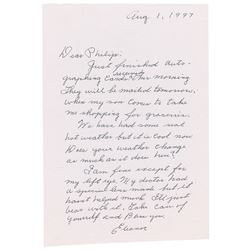 Aug 1, 1997
Dear Philip:
Just finished auto-
graphing cards this morning
They will be mailed tomorrow.
when my son comes to take
me shopping for groceries.
We have had some real
hot weather but it is cool now
Does your weather change
as much as it does here?
I am fine except for
my left eye. My doctor had
a special lens made but it
hasn't helped much I'll just
bear with it. Take care of
yourself and
Eleanor